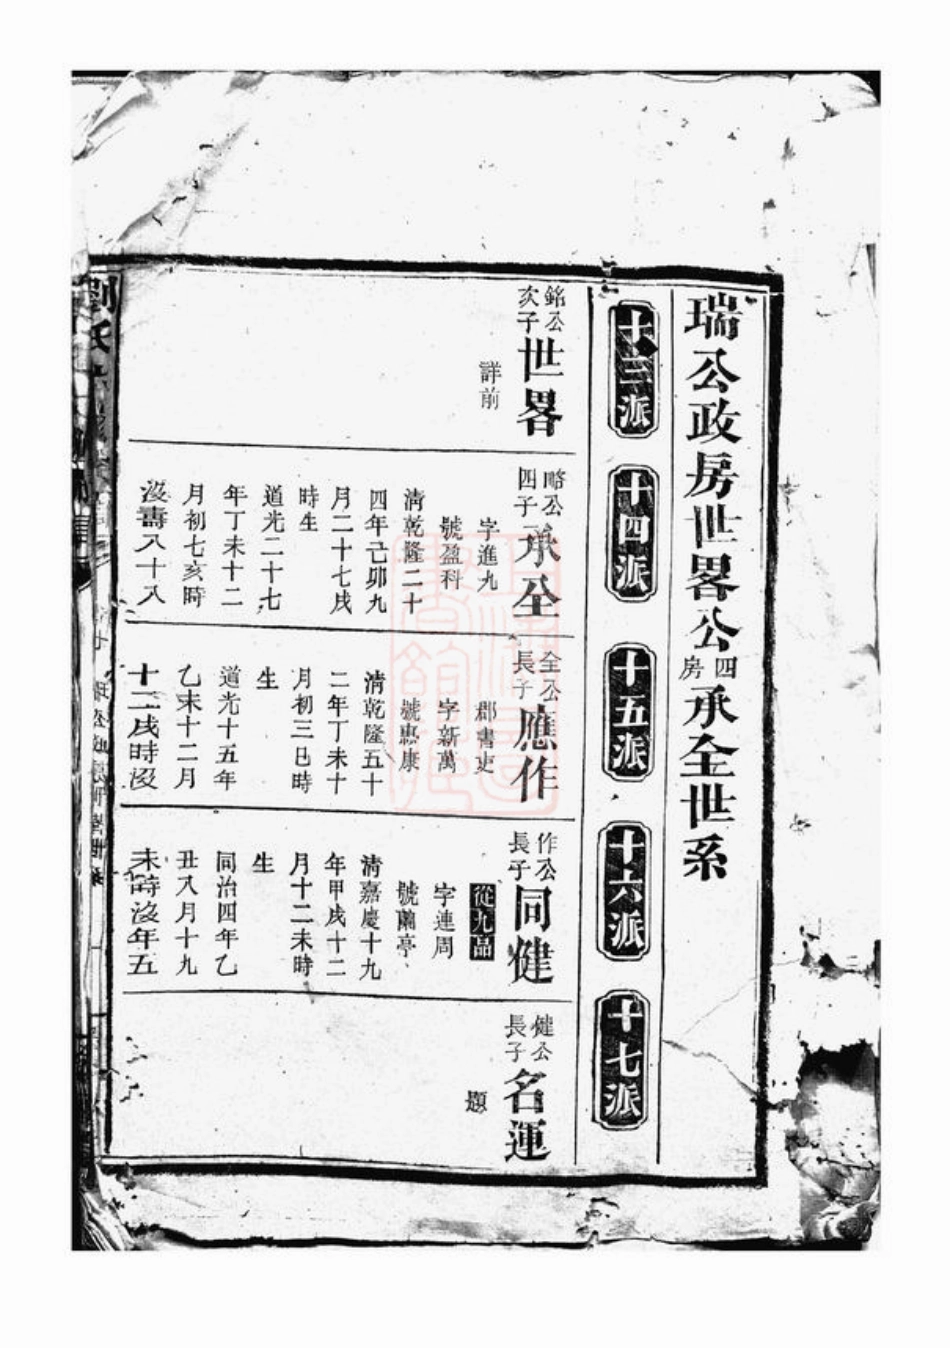 瑞公政房世畧公四房承全世系
十三派
十四派
十五派
十六派
十七派
銘公次子世畧
詳前
畧公四子承全
字進九
號盈科
清乾隆二十
四年己卯九
月二十七戌
時生
道光二十七
年丁未十二
月初七亥時
沒壽八十八
全公長子應作
郡書吏
字新萬
號惠康
清乾隆五十
二年丁未十
月初三巳時
生
道光十五年
乙未十二月
十二戌時沒
作公長子同健
從九品
字連周
號蘭亭
清嘉慶十九
年甲戌十二
月十二未時
生
同治四年乙
丑八月十九
未時沒年五
健公長子名運
題
劉氏